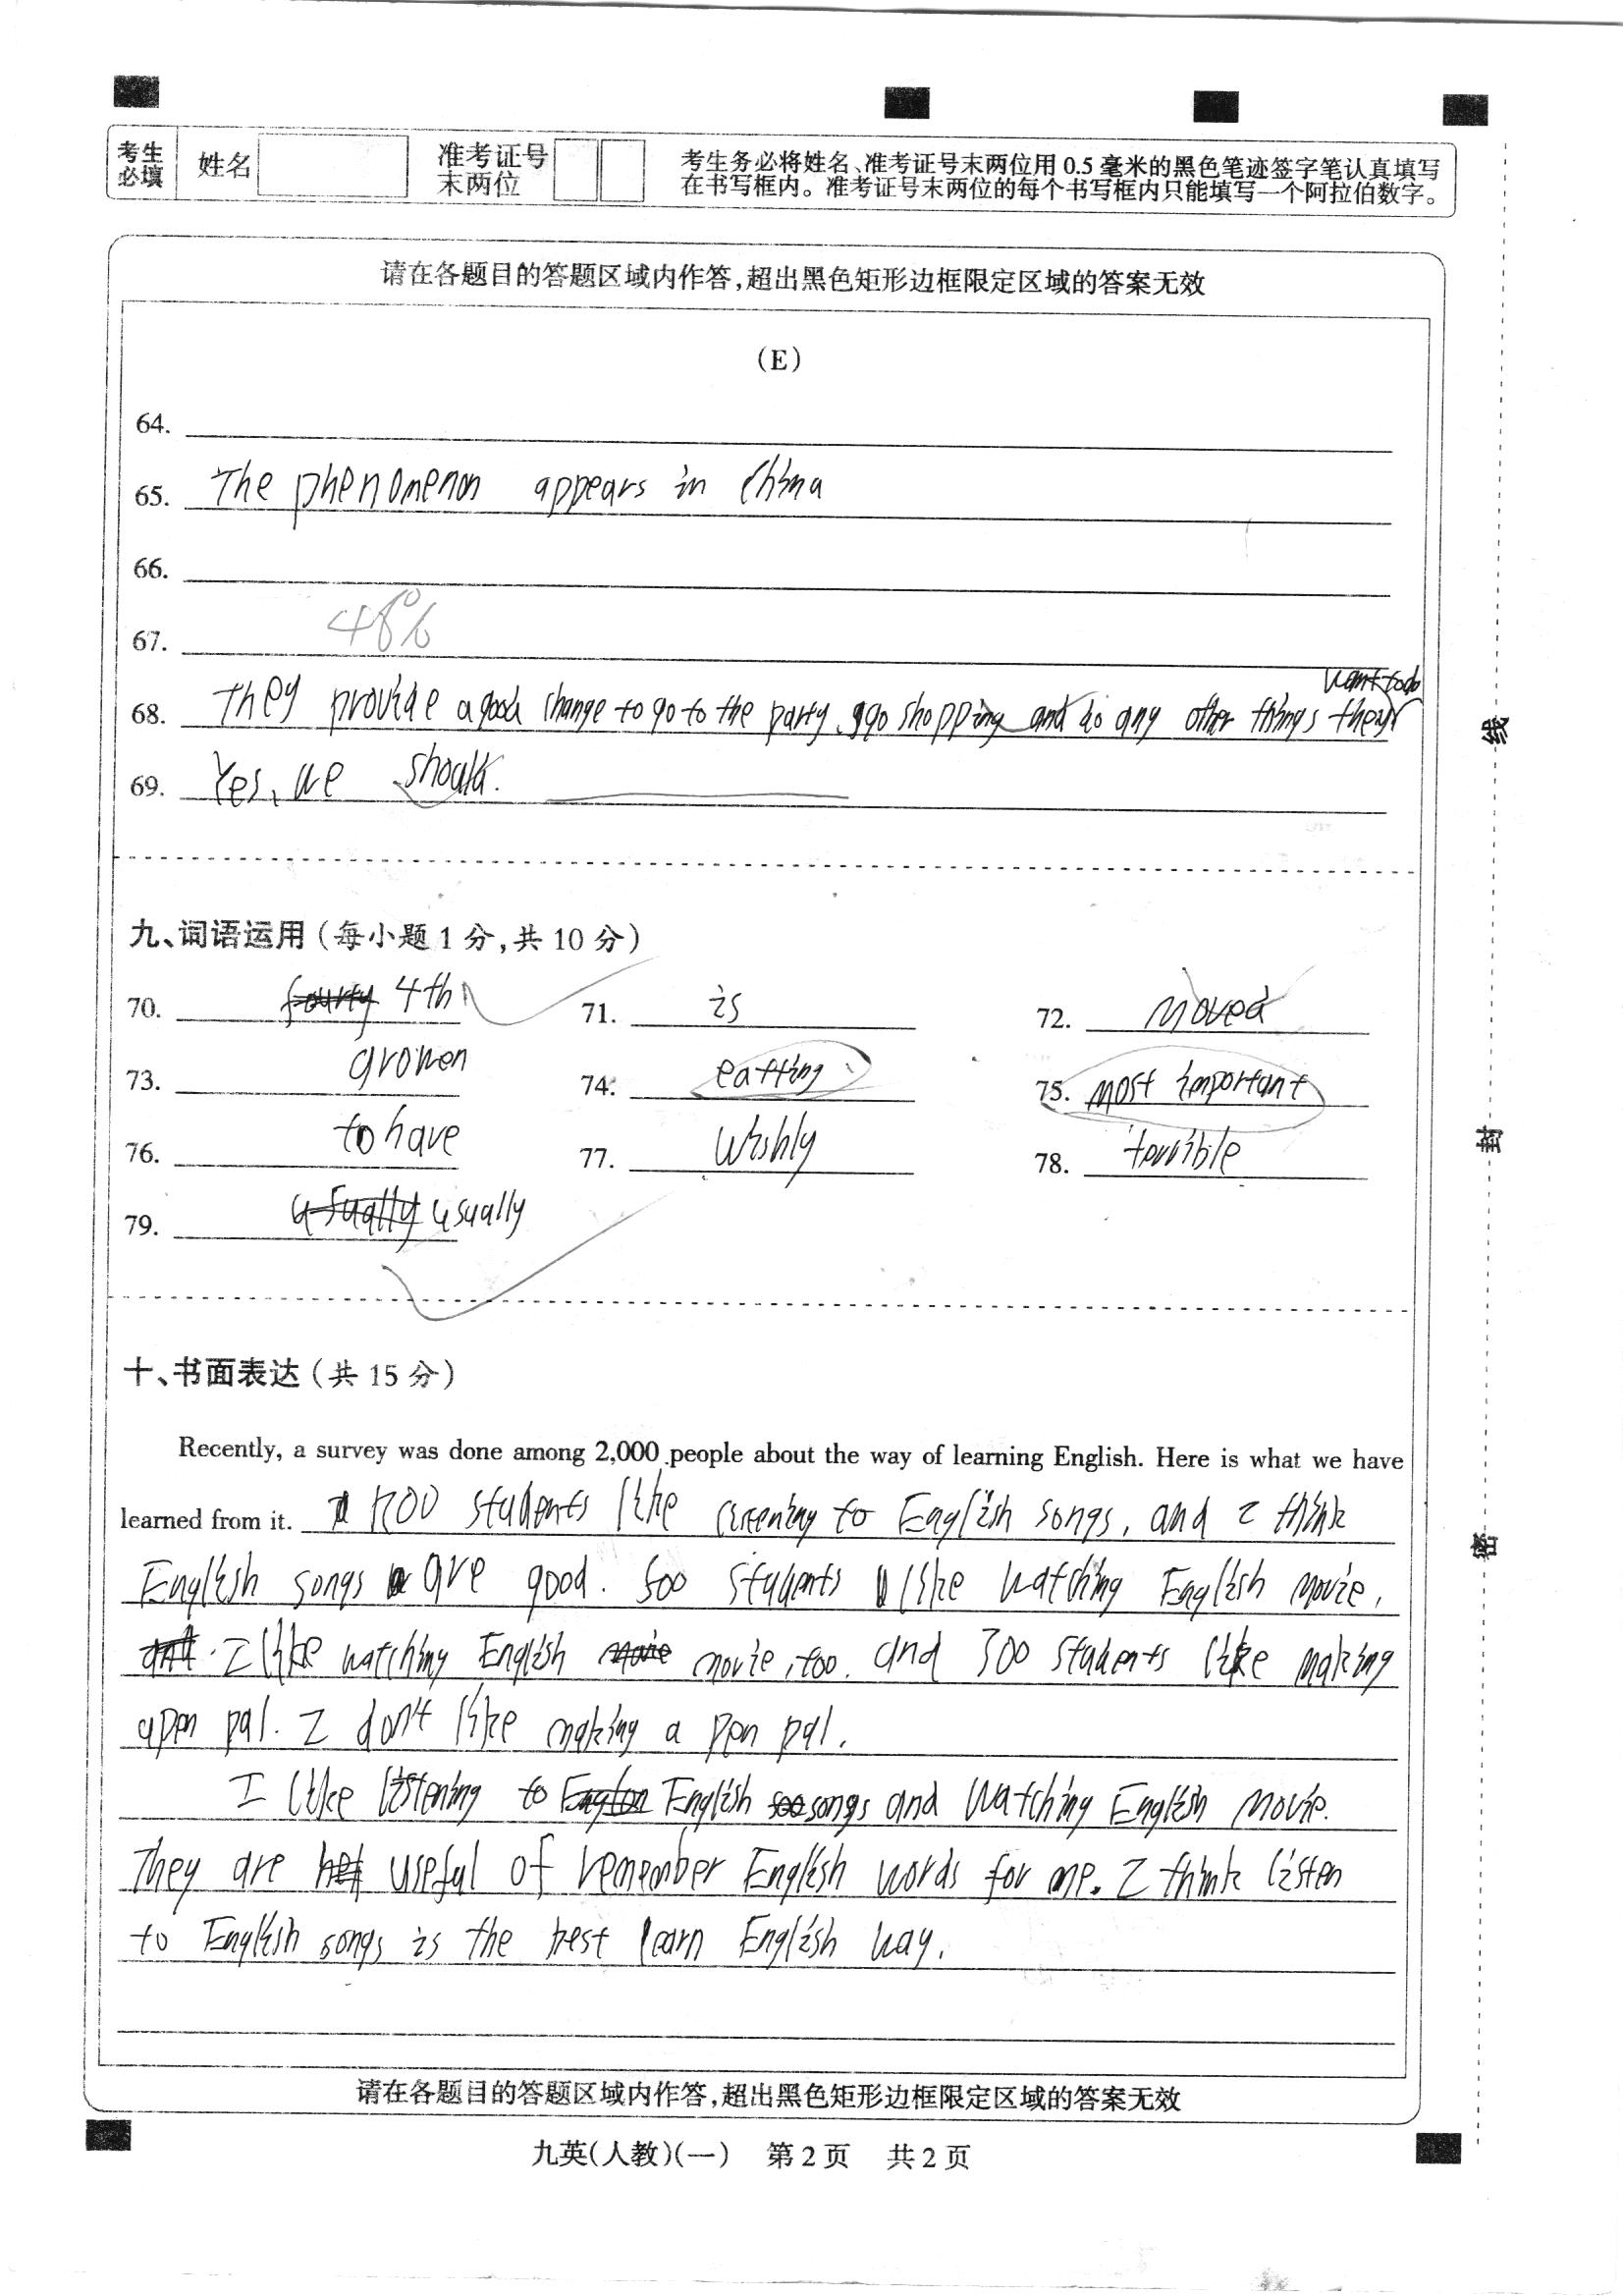 考生必填 姓名 准考证号末两位 考生务必将姓名、准考证号末两位用 0.5 毫米的黑色笔迹签字笔认真填写
在书写框内。准考证号末两位的每个书写框内只能填写一个阿拉伯数字。
请在各题目的答题区域内作答,超出黑色矩形边框限定区域的答案无效
(E)
64.
65. The phenomenon appears in China
66.
67. 48%
want to do
68. They provide a good change to go to the party, go shopping and do any other things they
69. Yes, we should.
线
九、词语运用(每小题 1 分,共 10 分)
70. fourty 4th 71. is 72. moved
73. growen 74. eatting 75. most important
76. to have 77. Wishly 78. terrible
79. usually
封
十、书面表达(共 15 分)
Recently, a survey was done among 2,000 people about the way of learning English. Here is what we have
learned from it. 1200 students like listening to English songs, and I think
English songs are good. 500 students like watching English movie,
and. I like watching English movie, too. and 300 students like making
a pen pal. I don't like making a pen pal.
I like listening to English songs and watching English movie.
They are useful of remember English words for me. I think listen
to English songs is the best learn English way.
密
请在各题目的答题区域内作答,超出黑色矩形边框限定区域的答案无效
九英(人教)(一) 第 2 页 共 2 页